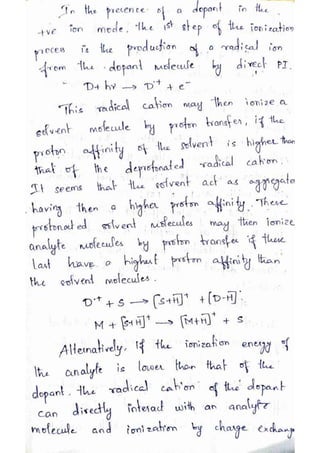 In the presence of a dopant in the
+ve ion mode, the 1st step of the ionization
process is the production of a radical ion
from the dopant molecule by direct PI.
D + hν → D⁺· + e⁻
This radical cation may then ionize a
solvent molecule by proton transfer, if the
proton affinity of the solvent is higher than
that of the deprotonated radical cation.
It seems that the solvent act as aggregate
having then a higher proton affinity. These
protonated solvent molecules may then ionize
analyte molecules by proton transfer if these
last have a highest proton affinity than
the solvent molecules.
D⁺· + S → [S+H]⁺ + [D-H]·
M + [S+H]⁺ → [M+H]⁺ + S
Alternatively, if the ionization energy of
the analyte is lower than that of the
dopant, the radical cation of the dopant
can directly interact with an analyte
molecule and ionization by charge exchange